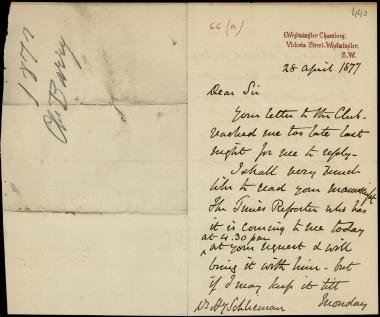 1877
Chs Barry
440
66 (a)
1 Westminster Chambers,
Victoria Street, Westminster,
S.W.
28 april 1877
Dear Sir
Your letter to the Club
reached me too late last
night for me to reply -
I shall very much
like to read your manuscript
The Times Reporter who has
it is coming to me today
at 4.30 pm
at your request & will
bring it with him - but
if I may keep it till
Monday
Dr Hy Schlieman